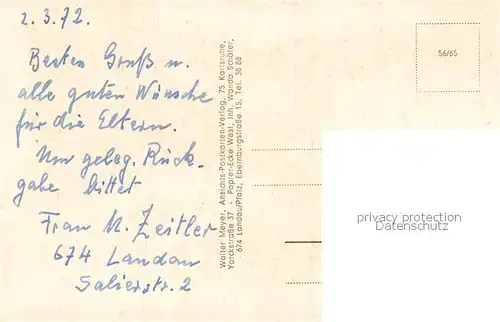 2.3.72.
Besten Gruß u.
alle guten Wünsche
für die Eltern.
Um geleg. Rück-
gabe bittet
Frau M. Zeitler
674 Landau
Salierstr. 2
Walter Meyer, Ansichts-Postkarten-Verlag, 75 Karlsruhe,
Yorckstraße 37 - Papier-Ecke West, Inh. Wanda Schäfer,
674 Landau/Pfalz, Ebernburgstraße 15, Tel. 36 88
56/65
privacy protection
Datenschutz